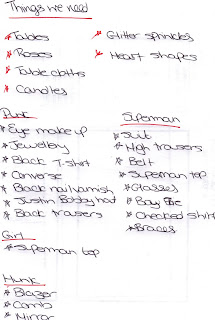 Things we need
* Tables
* Roses
* Table cloths
* Candles
* Glitter sprinkles
* Heart shapes
Punk
* Eye make up
* Jewellery
* Black T-shirt
* Converse
* Black nail varnish
* Justin Bobby hat
* Black trousers
Girl
* Superman top
Hunk
* Blazer
* Comb
* Mirror
Superman
* Suit
* High trousers
* Belt
* Superman top
* Glasses
* Bow tie
* Checked shirt
* Braces